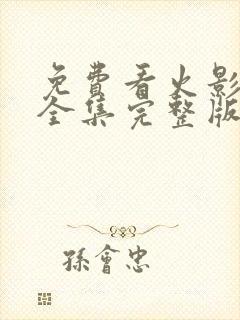 免費看火影
全集完整版
孫會忠